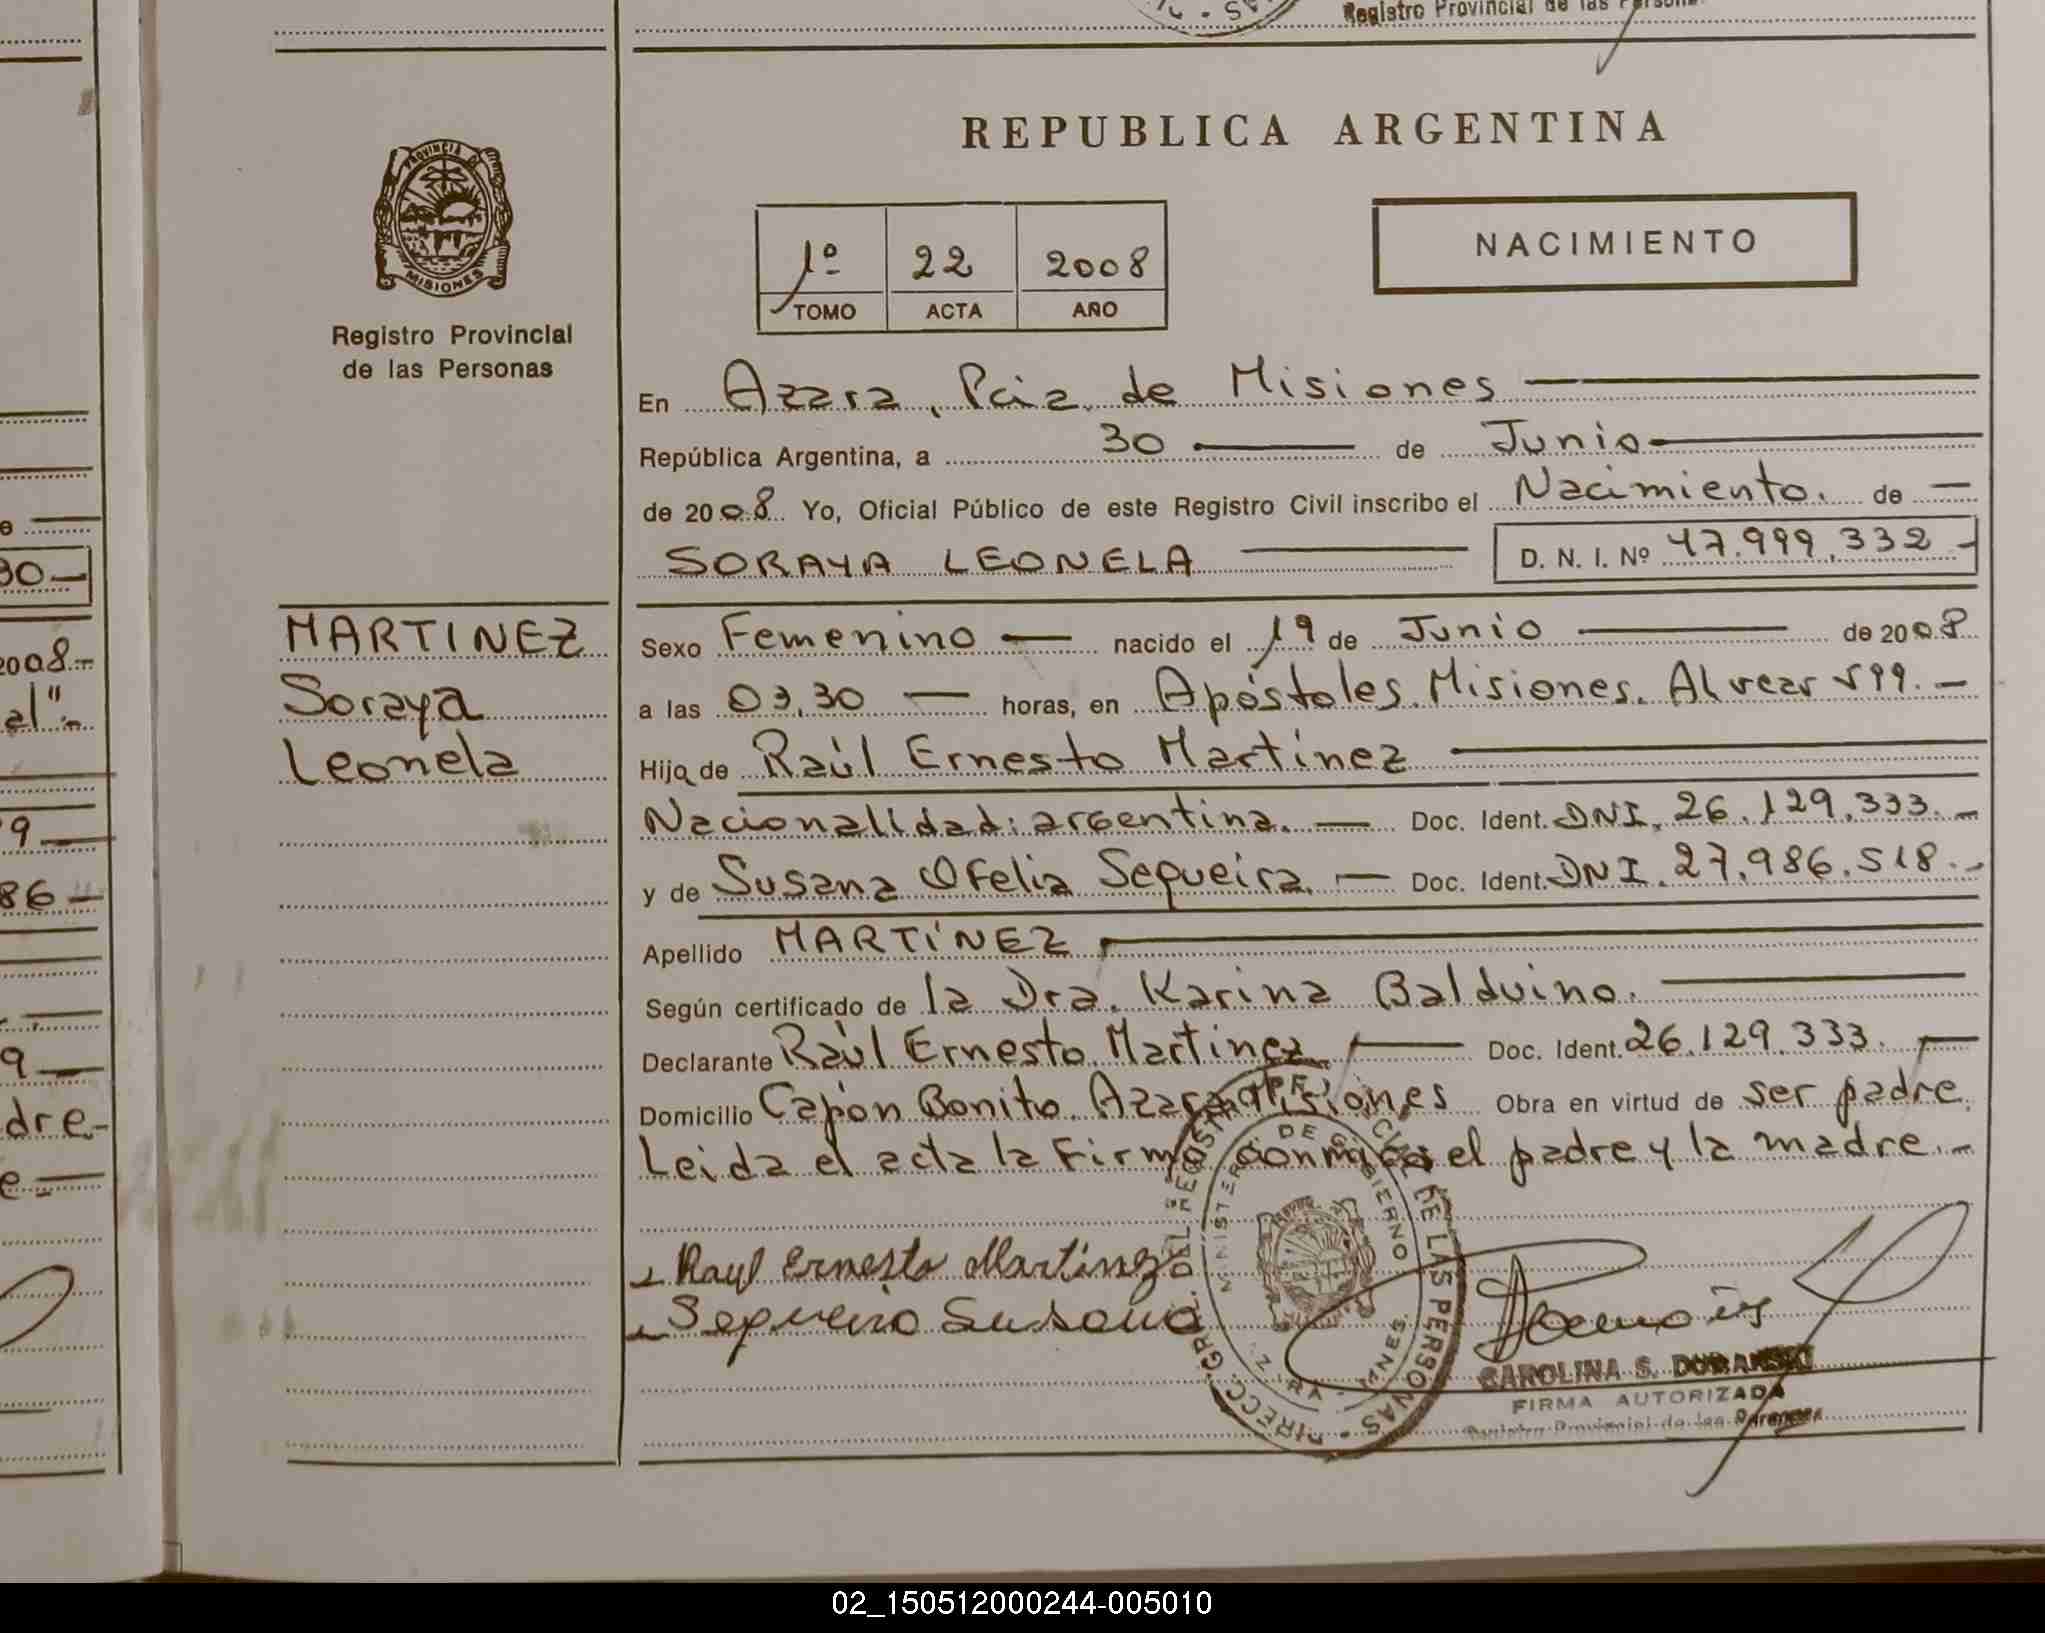 Registro Provincial de las Persona
REPUBLICA ARGENTINA
PROVINCIA DE
MISIONES
Registro Provincial
de las Personas
1º 22 2008
TOMO ACTA AÑO
NACIMIENTO
En Azara, Pcia. de Misiones
República Argentina, a 30 de Junio
de 2008 Yo, Oficial Público de este Registro Civil inscribo el Nacimiento. de
SORAYA LEONELA D. N. I. Nº 47.999.332
MARTINEZ
Soraya
Leonela
Sexo Femenino nacido el 19 de Junio de 2008
a las 03,30 horas, en Apóstoles. Misiones. Alvear 599.
Hija de Raúl Ernesto Martínez
Nacionalidad: argentina. Doc. Ident. DNI. 26.129.333.
y de Susana Ofelia Sequeira Doc. Ident. DNI. 27.986.518.
Apellido MARTÍNEZ
Según certificado de la Dra. Karina Balduino.
Declarante Raúl Ernesto Martínez Doc. Ident. 26.129.333.
Domicilio Capón Bonito. Azara Misiones Obra en virtud de ser padre.
Leida el acta la firma conmigo el padre y la madre.
Raul Ernesto Martinez
Sequeira Susana
DIRECC. GRAL. DEL REGISTRO DE LAS PERSONAS
MINISTERIO DE GOBIERNO
CAROLINA S.
FIRMA AUTORIZADA
Registro Provincial de las Personas
30
2008
al"
9
86
9
dre
e
02_150512000244-005010